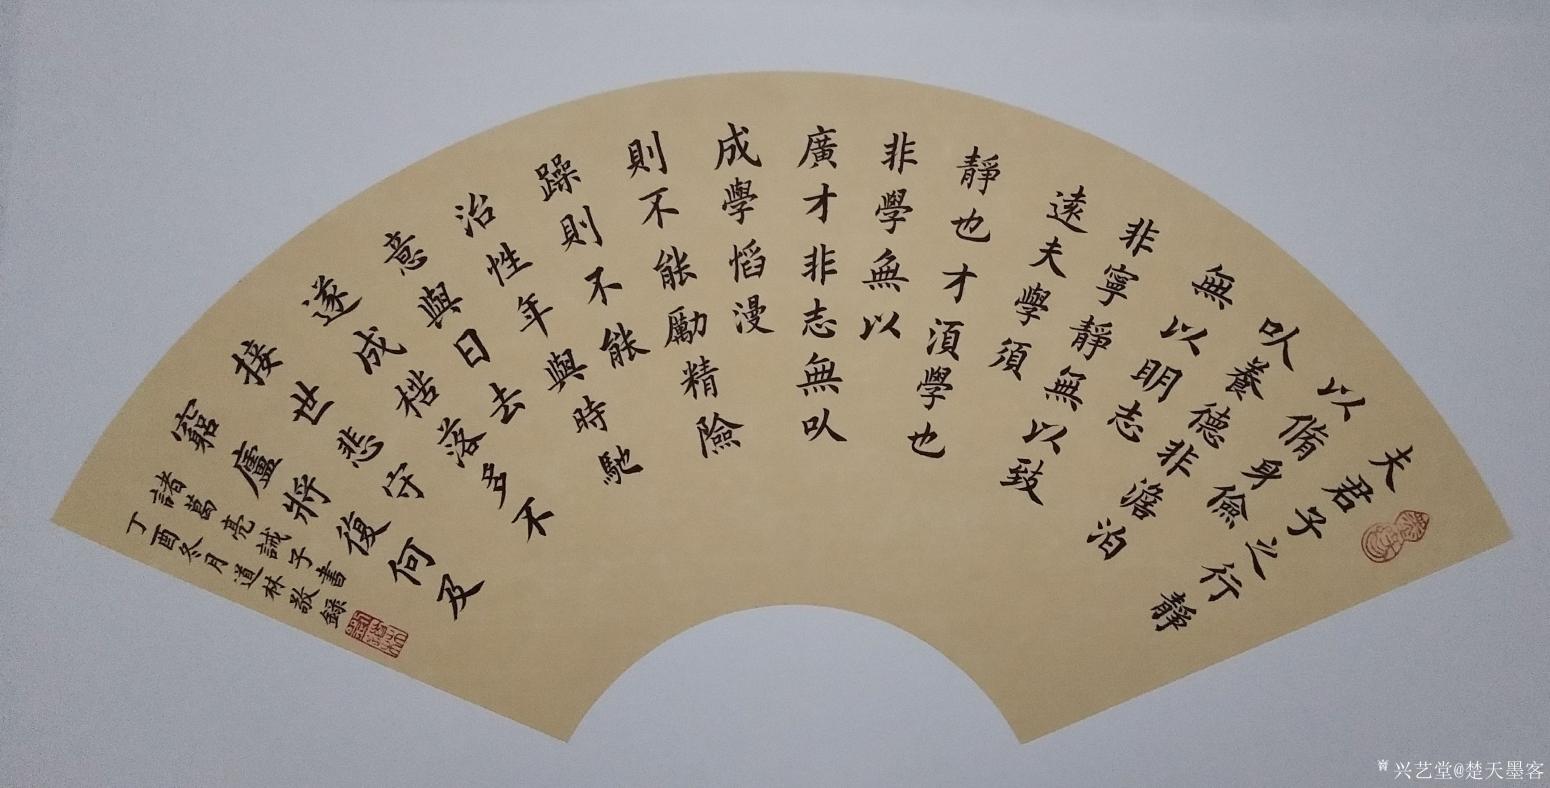 夫君子之行靜
以脩身儉
以養德非澹泊
無以明志
非寧靜無以致
遠夫學須
靜也才湏學也
非學無以
廣才非志無以
成學慆漫
則不能勵精險
躁則不能
治性年與時馳
意與日去
遂成楛落多不
接世悲守
窮廬將復何及
諸葛亮誡子書
丁酉冬月道林敬錄
兴艺堂@楚天墨客